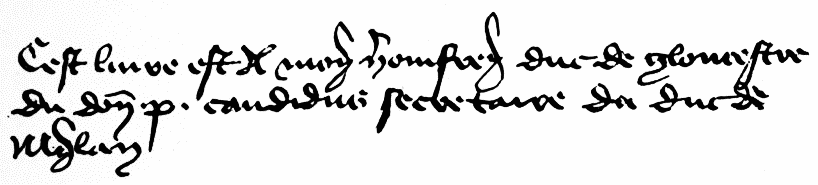 Cest livre est A moy homfrey duc de gloucestre
du don .p. candidus secretaire du duc de
Mylan